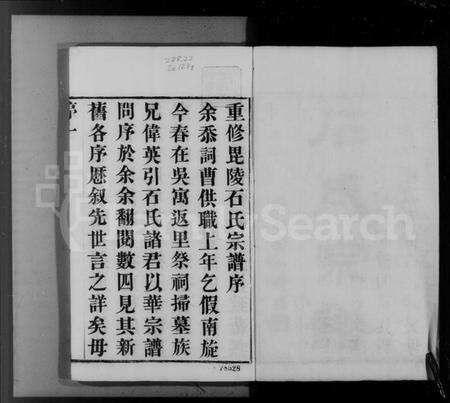 重修毘陵石氏宗譜序
余忝詞曹供職上年乞假南旋
今春在吳寓返里祭祠掃墓族
兄偉英引石氏諸君以華宗譜
問序於余余翻閱數四見其新
舊各序歷叙先世言之詳矣毋
序一